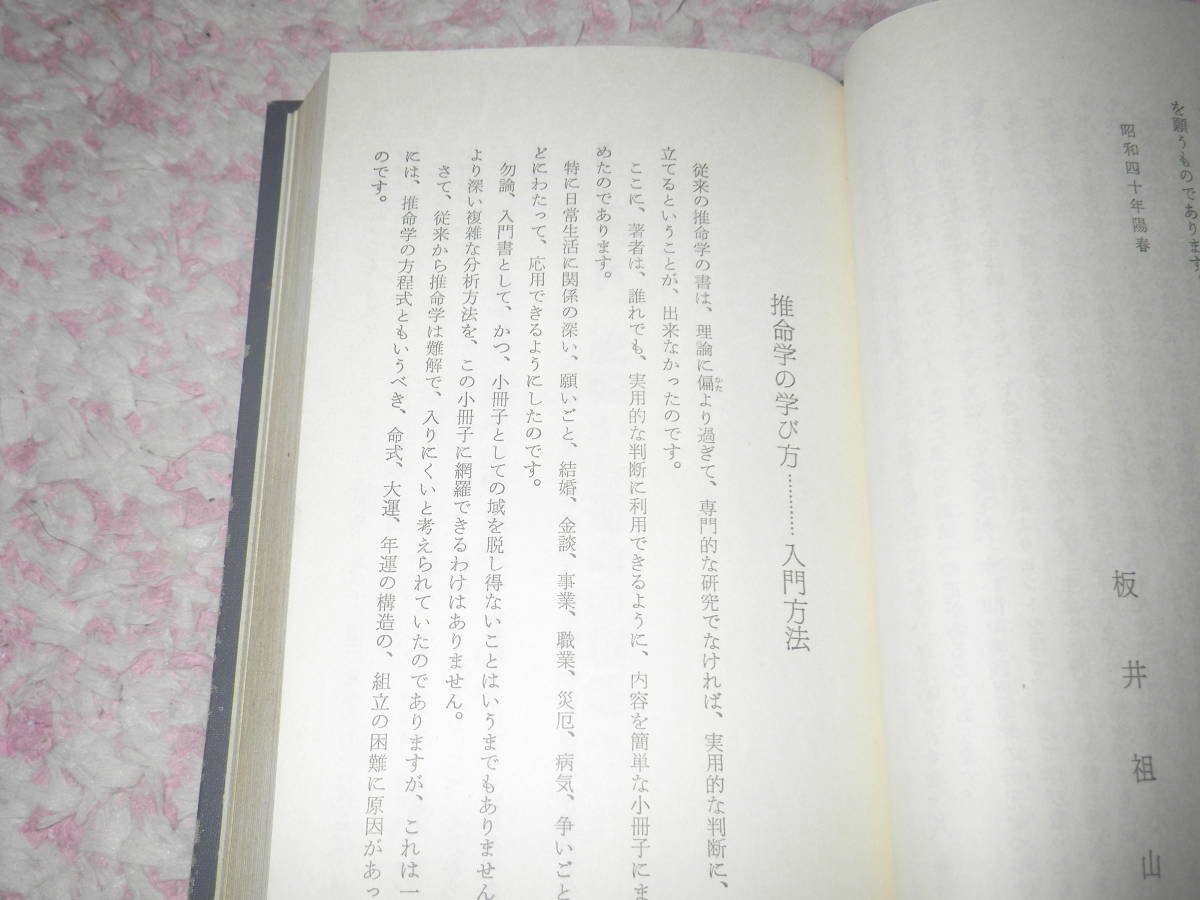 を願うものであります
昭和四十年陽春
板井祖山
推命学の学び方…………入門方法
従来の推命学の書は、理論に偏より過ぎて、専門的な研究でなければ、実用的な判断に、
かた
立てるということが、出来なかったのです。
ここに、著者は、誰れでも、実用的な判断に利用できるように、内容を簡単な小冊子にま
めたのであります。
特に日常生活に関係の深い、願いごと、結婚、金談、事業、職業、災厄、病気、争いごと
どにわたって、応用できるようにしたのです。
勿論、入門書として、かつ、小冊子としての域を脱し得ないことはいうまでもありません
より深い複雑な分析方法を、この小冊子に網羅できるわけはありません。
さて、従来から推命学は難解で、入りにくいと考えられていたのでありますが、これは一
には、推命学の方程式ともいうべき、命式、大運、年運の構造の、組立の困難に原因があっ
のです。